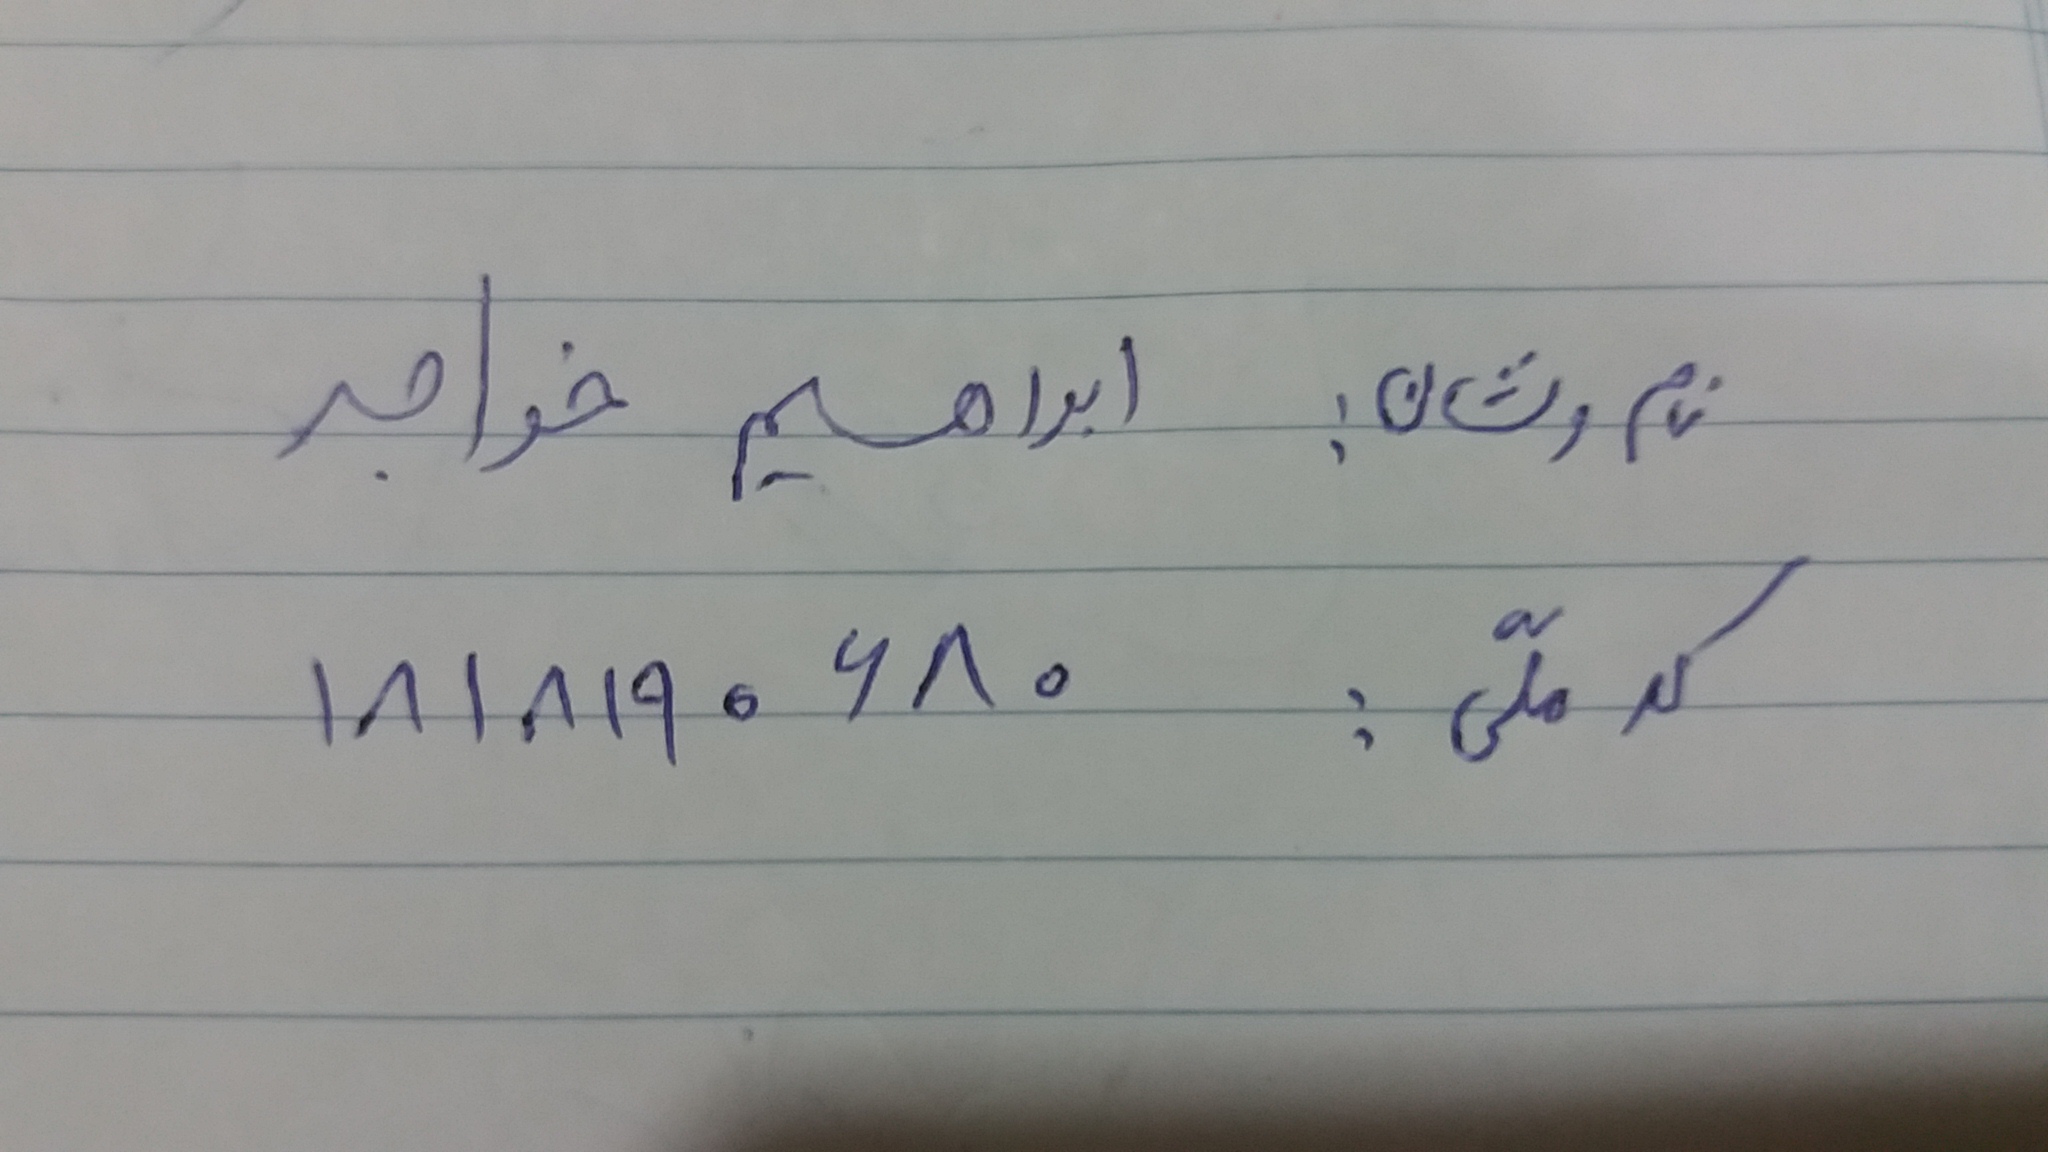 نام و نشان: ابراهیم خواجه
کد ملّی: ۱۸۱۸۱۹۰۶۸۰